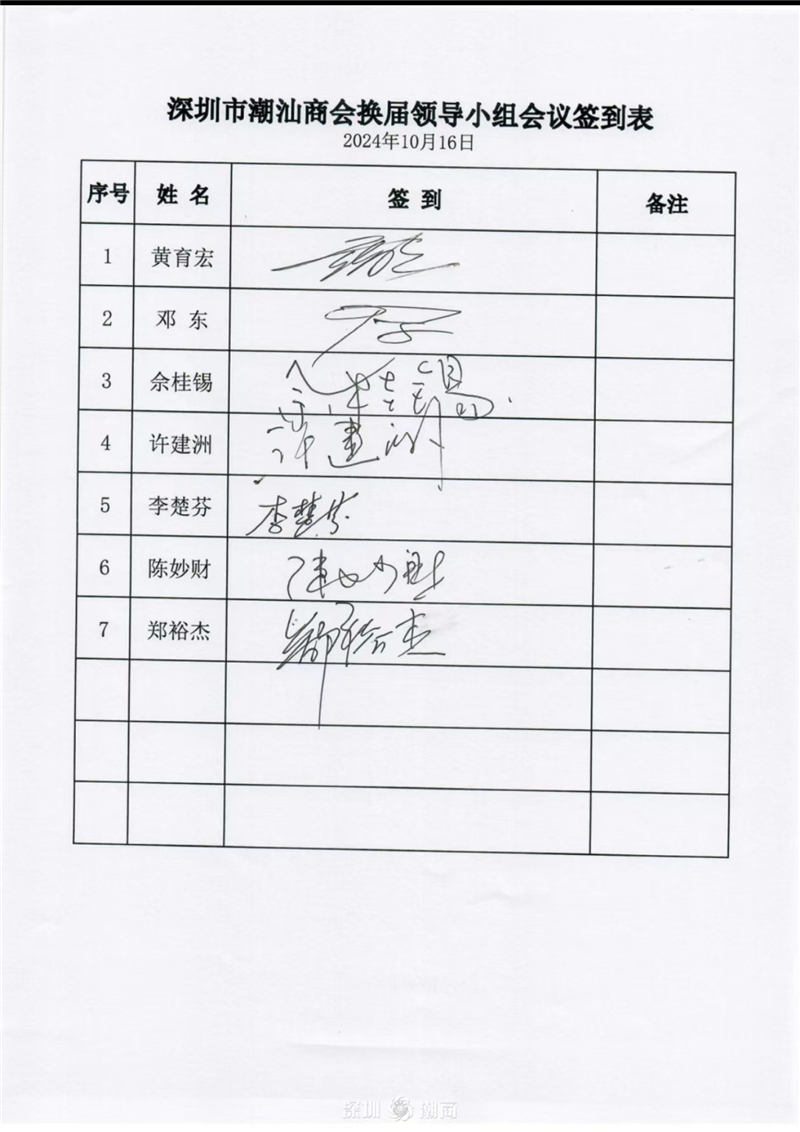 深圳市潮汕商会换届领导小组会议签到表
2024年10月16日
序号 姓 名 签 到 备注
1 黄育宏
2 邓 东
3 佘桂锡 佘桂锡
4 许建洲 许建洲
5 李楚芬 李楚芬
6 陈妙财 陈妙财
7 郑裕杰 郑裕杰
深圳 潮商